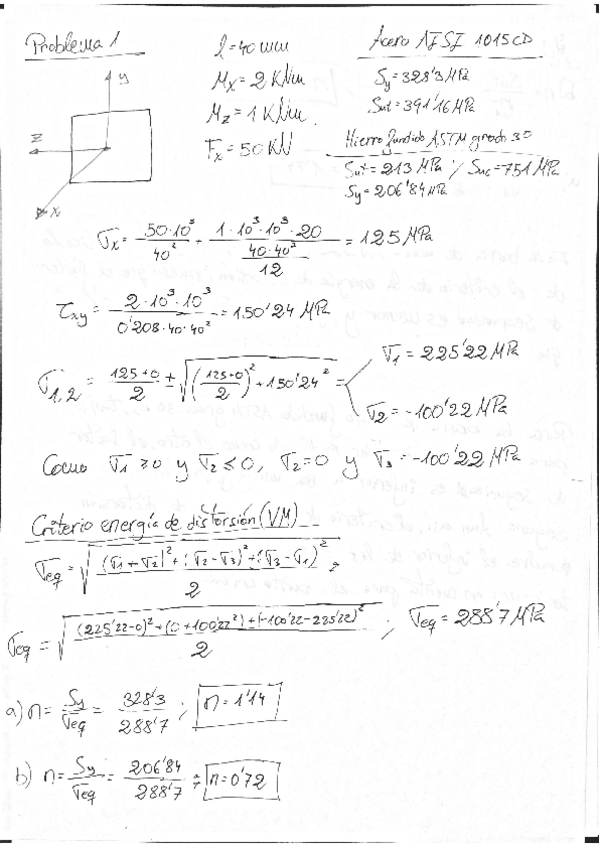 Problema 1
l = 40 mm
Mx = 2 KNm
Mz = 1 KNm.
Fx = 50 KN
Acero AISI 1015 CD
Sy = 328'3 MPa
Sut = 391'16 MPa
Hierro fundido ASTM grado 30
Sut = 213 MPa / Suc = 751 MPa
Sy = 206'84 MPa
y
z
x
σx = 50·10³ / 40² + 1·10³·10³·20 / (40·40³ / 12) = 125 MPa
τxy = 2·10³·10³ / 0'208·40·40² = 150'24 MPa
σ1,2 = (125+0)/2 ± √(((125-0)/2)² + 150'24²) =
σ1 = 225'22 MPa
σ2 = -100'22 MPa
Como σ1 ≥ 0 y σ2 ≤ 0, σ2 = 0 y σ3 = -100'22 MPa
Criterio energía de distorsión (VM)
σeq = √(((σ1 - σ2)² + (σ2 - σ3)² + (σ3 - σ1)²) / 2) ;
σeq = √(((225'22-0)² + (0+100'22²) + (-100'22-225'22)²) / 2) ; σeq = 288'7 MPa
a) n = Sy/σeq = 328'3/288'7 ; n = 1'14
b) n = Sy/σeq = 206'84/288'7 ; n = 0'72